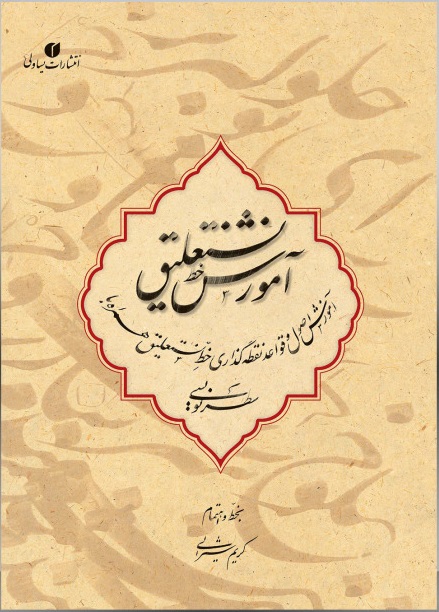 انتشارات یساولی
آموزش خط نستعلیق
آموزش اصول و قواعد نقطه‌گذاری خط نستعلیق همراه با
سطرنویسی
بخط و اهتمام
کریم شیرالی